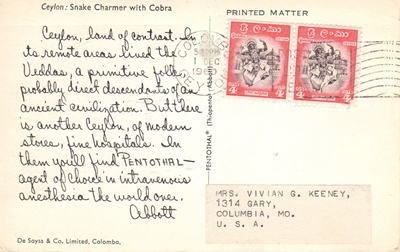 Ceylon: Snake Charmer with Cobra
Ceylon, land of contrast. In
its remote areas lived the
Veddas, a primitive folk,
probably direct descendants of an
ancient civilization. But there
is another Ceylon, of modern
stores, fine hospitals. In
them you'll find PENTOTHAL—
agent of choice in intravenous
anesthesia the world over.
Abbott
De Soysa & Co. Limited, Colombo.
PENTOTHAL® (Thiopental, Abbott)
PRINTED MATTER
COLOMBO
1 DEC
ලංකා
ලංකා
4
4
MRS. VIVIAN G. KEENEY,
1314 GARY,
COLUMBIA, MO.
U. S. A.